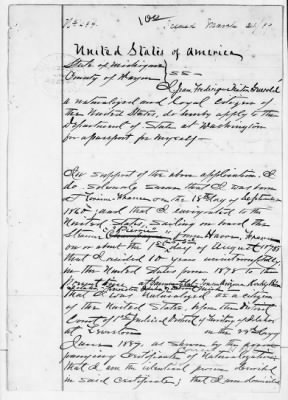 United States of America
State of Michigan
County of Wayne } SS—
I, Jean Frederique
a naturalized and loyal citizen of
the United States, do hereby apply to the
Department of State at Washington
for a passport for myself—
In support of the above application, I
do solemnly swear that I was born
at France on the 18th day of September
1860; and that I emigrated to the
United States, sailing on board the
Steamer from Havre France
on or about the 1st day of August 1878
that I resided 10 years uninterruptedly
in the United States from 1878 to the
present time
that I was naturalized as a citizen
of the United States before the District
Court of 1st Judicial District of Territory of Idaho
at on the 22 day of
June 1889, as shown by the accom-
panying Certificate of Naturalization;
that I am the identical person described
in said certificate; that I am domiciled